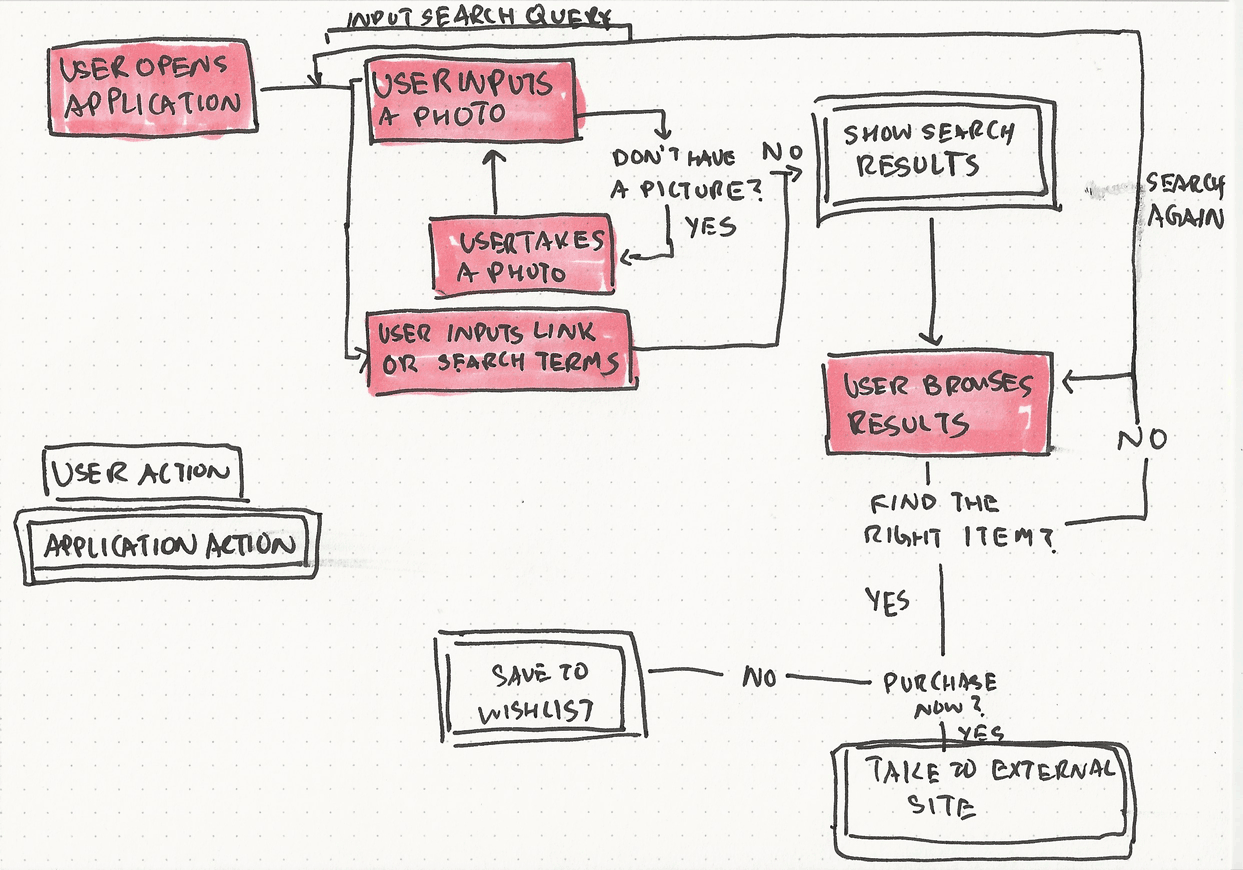 INPUT SEARCH QUERY
USER OPENS
APPLICATION
USER INPUTS
A PHOTO
DON'T HAVE
A PICTURE?
NO
YES
USER TAKES
A PHOTO
USER INPUTS LINK
OR SEARCH TERMS
SHOW SEARCH
RESULTS
SEARCH
AGAIN
USER BROWSES
RESULTS
NO
FIND THE
RIGHT ITEM?
YES
USER ACTION
APPLICATION ACTION
SAVE TO
WISHLIST
NO
PURCHASE
NOW?
YES
TAKE TO EXTERNAL
SITE